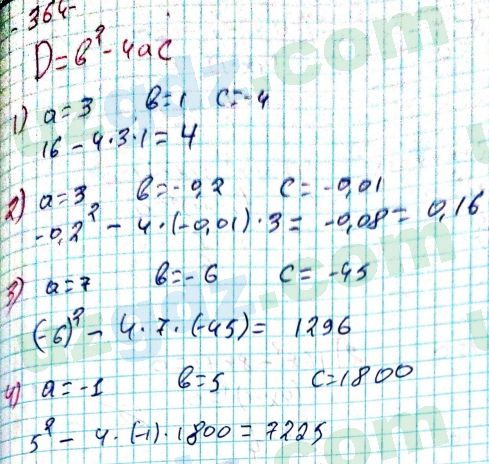 364-
D = b² - 4ac
1) a = 3 b = 1 c = -4
16 - 4·3·1 = 4
2) a = 3 b = -0,2 c = -0,01
-0,2² - 4·(-0,01)·3 = -0,08 = 0,16
3) a = 7 b = -6 c = -45
(-6)² - 4·7·(-45) = 1296
4) a = -1 b = 5 c = 1800
5² - 4·(-1)·1800 = 7225